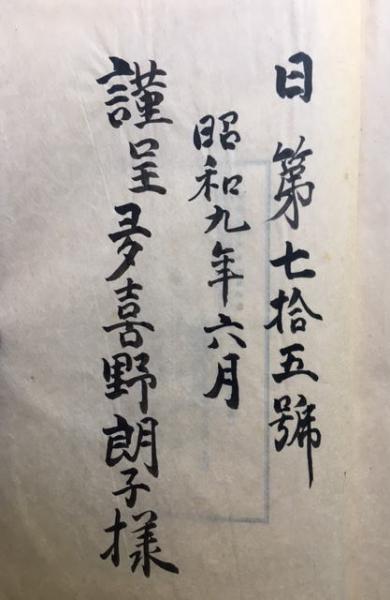 日 第七拾五號
昭和九年六月
謹呈 多喜野朗子様